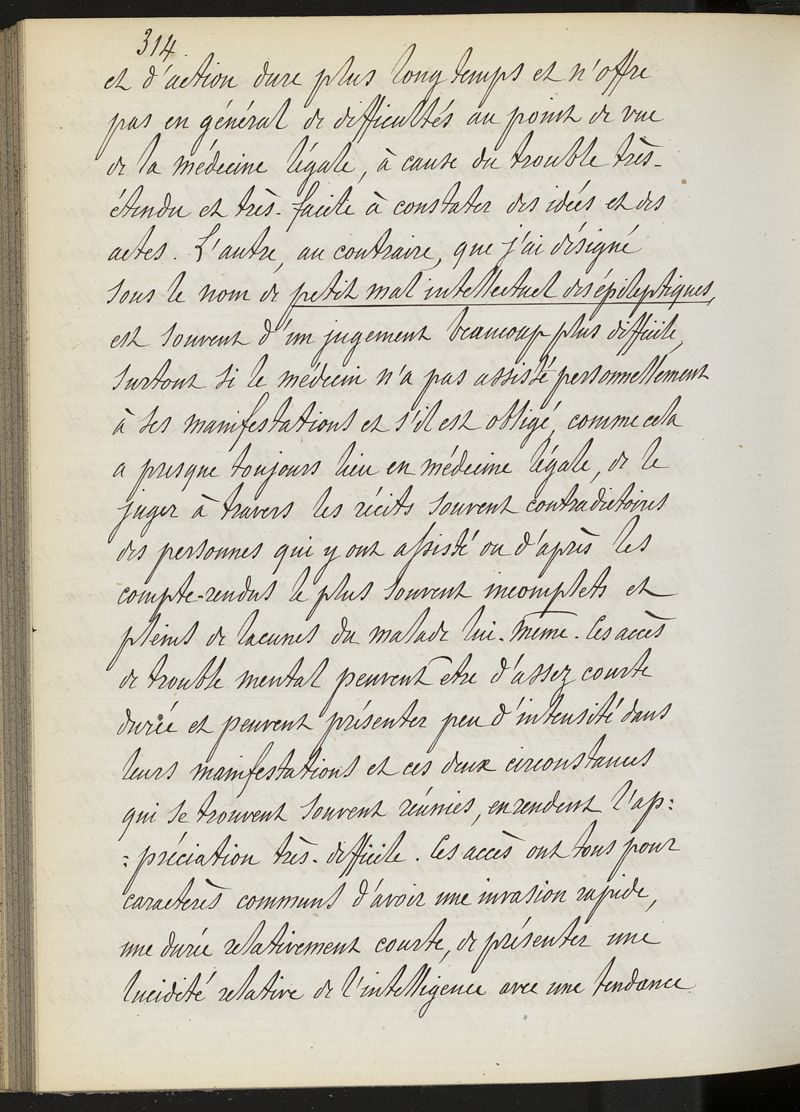 314.
et d'action dure plus longtemps et n'offre
pas en général de difficultés au point de vue
de la médecine légale, à cause du trouble très-
étendu et très-facile à constater des idées et des
actes. L'autre, au contraire, que j'ai désigné
sous le nom de petit mal intellectuel des épileptiques,
est souvent d'un jugement beaucoup plus difficile,
surtout si le médecin n'a pas assisté personnellement
à ses manifestations et s'il est obligé, comme cela
a presque toujours lieu en médecine légale, de le
juger à travers les récits souvent contradictoires
des personnes qui y ont assisté ou d'après les
compte-rendus le plus souvent incomplets et
pleins de lacunes du malade lui-même. Ces accès
de trouble mental peuvent être d'assez courte
durée et peuvent présenter peu d'intensité dans
leurs manifestations et ces deux circonstances
qui se trouvent souvent réunies, en rendent l'ap:
:préciation très-difficile. Ces accès ont tous pour
caractères communs d'avoir une invasion rapide,
une durée relativement courte, de présenter une
lucidité relative de l'intelligence avec une tendance